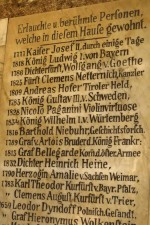 Erlauchte u. berühmte Personen,
welche in diesem Hause gewohnt.
1777 Kaiser Josef II., durch einige Tage
König Ludwig I. von Bayern
1786 Dichterfürst Wolfgang v. Goethe
1825 Fürst Clemens Metternich, Kanzler
1809 Andreas Hofer Tiroler Held,
König Gustav III. v. Schweden,
1828 Nicolo Paganini Violinvirtuose
König Wilhelm I. v. Würtemberg
1816 Barthold Niebuhr, Geschichtsforsch.
Graf v. Artois Bruder d. König Frank
1825 Graf Bellegarde Kom. d. österr. Armee
Dichter Heinrich Heine,
1790 Herzogin Amalie v. Sachsen Weimar,
Karl Theodor Kurfürst v. Bayr. Pfalz,
Clemens August Kurfürst v. Trier,
Leodor Dyndoff Polnisch. Gesandt,
Graf Hieronymus Wolkenst